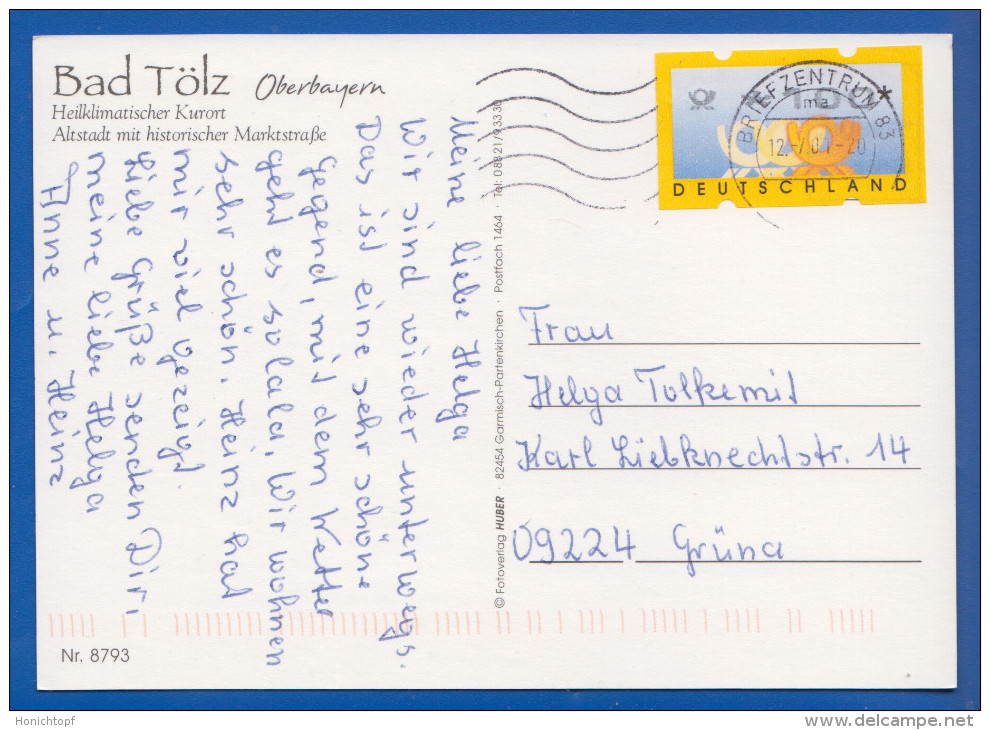 Bad Tölz Oberbayern
Heilklimatischer Kurort
Altstadt mit historischer Marktstraße
Meine liebe Helga
Wir sind wieder unterwegs.
Das ist eine sehr schöne
Gegend, mit dem Wetter
geht es solala. Wir wohnen
sehr schön. Heinz hat
mir viel gezeigt.
Liebe Grüße senden Dir,
meine liebe Helga
Anne u. Heinz
Nr. 8793
© Fotoverlag HUBER · 82454 Garmisch-Partenkirchen · Postfach 1464 · Tel: 08821/93330
BRIEFZENTRUM 83
ma
DEUTSCHLAND
Frau
Helga Tolkemit
Karl Liebknechtstr. 14
09224 Grüna
Honichtopf
www.delcampe.net